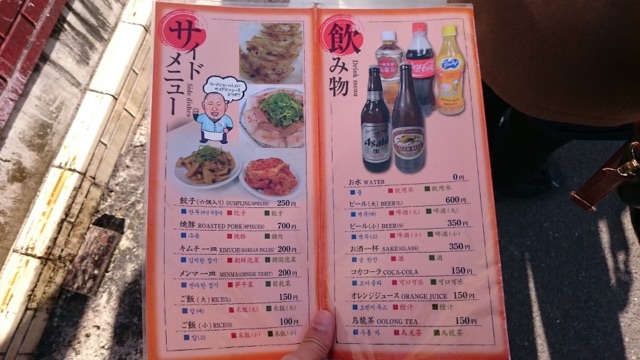 サイドメニュー
Side dishes
餃子(六個入り) DUMPLING(6PIECES) 250円
餃子 餃子
焼豚 ROASTED PORK(9PIECES) 700円
キムチ一皿 KIMUCHI(KOREAN PICLES) 200円
メンマ一皿 MENMA(CHINESE TIDBIT) 200円
ご飯(大) RICE(L) 150円
밥(대) 米飯(大) 米飯(大)
ご飯(小) RICE(S) 100円
밥(소) 米飯(小) 米飯(小)
飲み物
Drink menu
Coca-Cola
Asahi
KIRIN
お水 WATER 0円
물 飲用水 飲用水
ビール(大) BEER(L) 600円
맥주(대) 啤酒(大) 啤酒(大)
ビール(小) BEER(S) 350円
맥주(소) 啤酒(小) 啤酒(小)
お酒一杯 SAKE(GLASS) 350円
술 한잔 酒 酒
コカコーラ COCA-COLA 150円
코카콜라 可口可乐 可口可樂
オレンジジュース ORANGE JUICE 150円
오렌지 주스 橙汁 橙汁
烏龍茶 OOLONG TEA 150円
우롱차 乌龙茶 烏龍茶